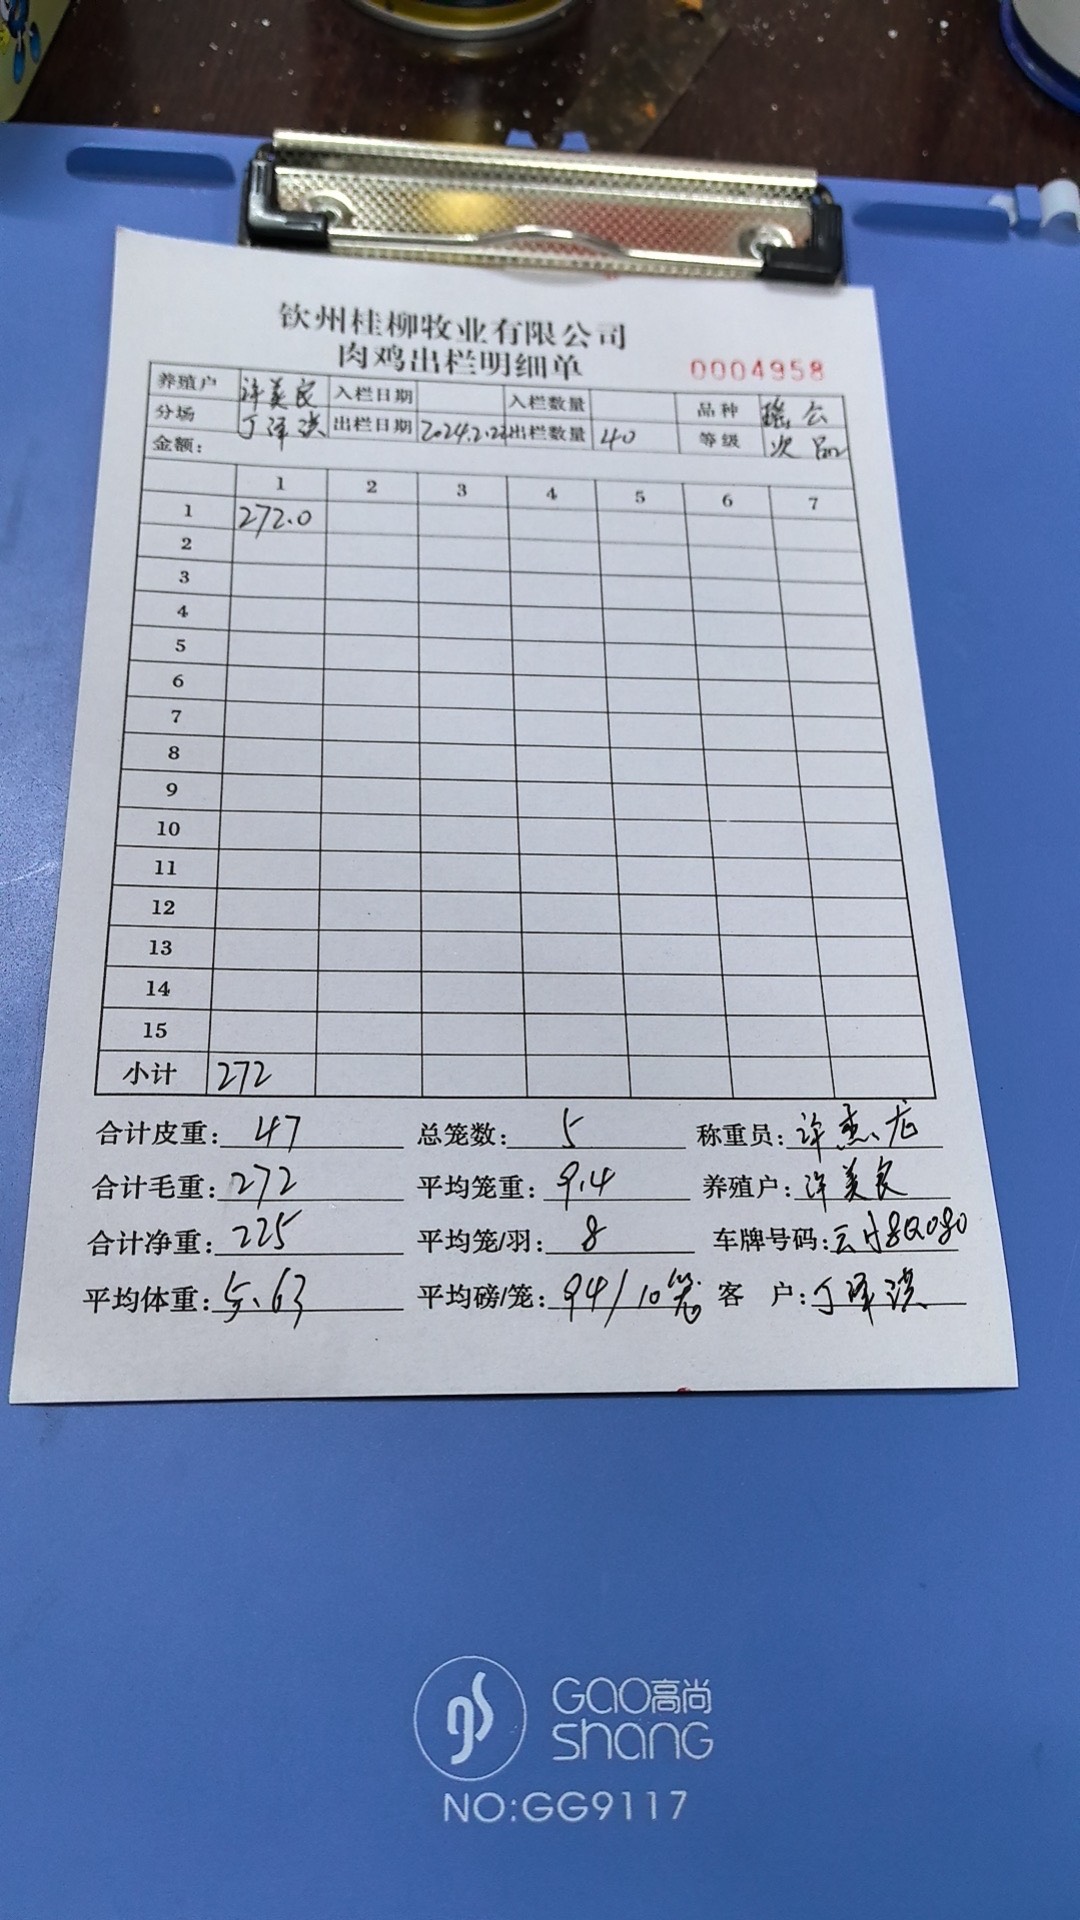 钦州桂柳牧业有限公司
肉鸡出栏明细单 0004958
养殖户 许美良 入栏日期 入栏数量 品种 瑶公
分场 丁泽洪 出栏日期 2024.2.22 出栏数量 40 等级 次品
金额:
1 2 3 4 5 6 7
1 272.0
2
3
4
5
6
7
8
9
10
11
12
13
14
15
小计 272
合计皮重: 47 总笼数: 5 称重员: 许杰龙
合计毛重: 272 平均笼重: 9.4 养殖户: 许美良
合计净重: 225 平均笼/羽: 8 车牌号码:
平均体重: 5.63 平均磅/笼: 94/10笼 客户: 丁泽洪
GAO高尚
SHANG
NO:GG9117